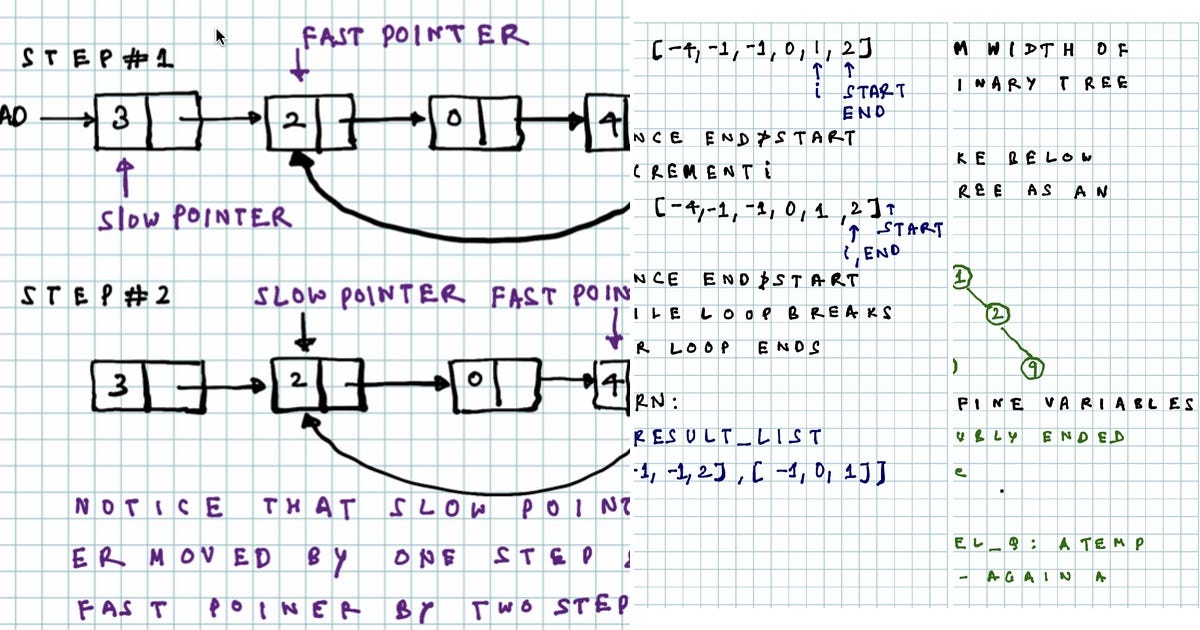 FAST POINTER
STEP#1
AD
3
2
0
4
SLOW POINTER
STEP#2
SLOW POINTER
FAST POIN
3
2
0
4
NOTICE THAT SLOW POINT
ER MOVED BY ONE STEP
FAST POINER BY TWO STEP
[-4, -1, -1, 0, 1, 2]
i START
END
NCE END≯START
CREMENT i
[-4, -1, -1, 0, 1, 2]
START
i, END
NCE END≯START
ILE LOOP BREAKS
R LOOP ENDS
RN:
RESULT_LIST
-1, -1, 2], [-1, 0, 1]]
M WIDTH OF
INARY TREE
KE BELOW
REE AS AN
1
2
9
)
FINE VARIABLES
UBLY ENDED
e
EL_Q: A TEMP
- AGAIN A